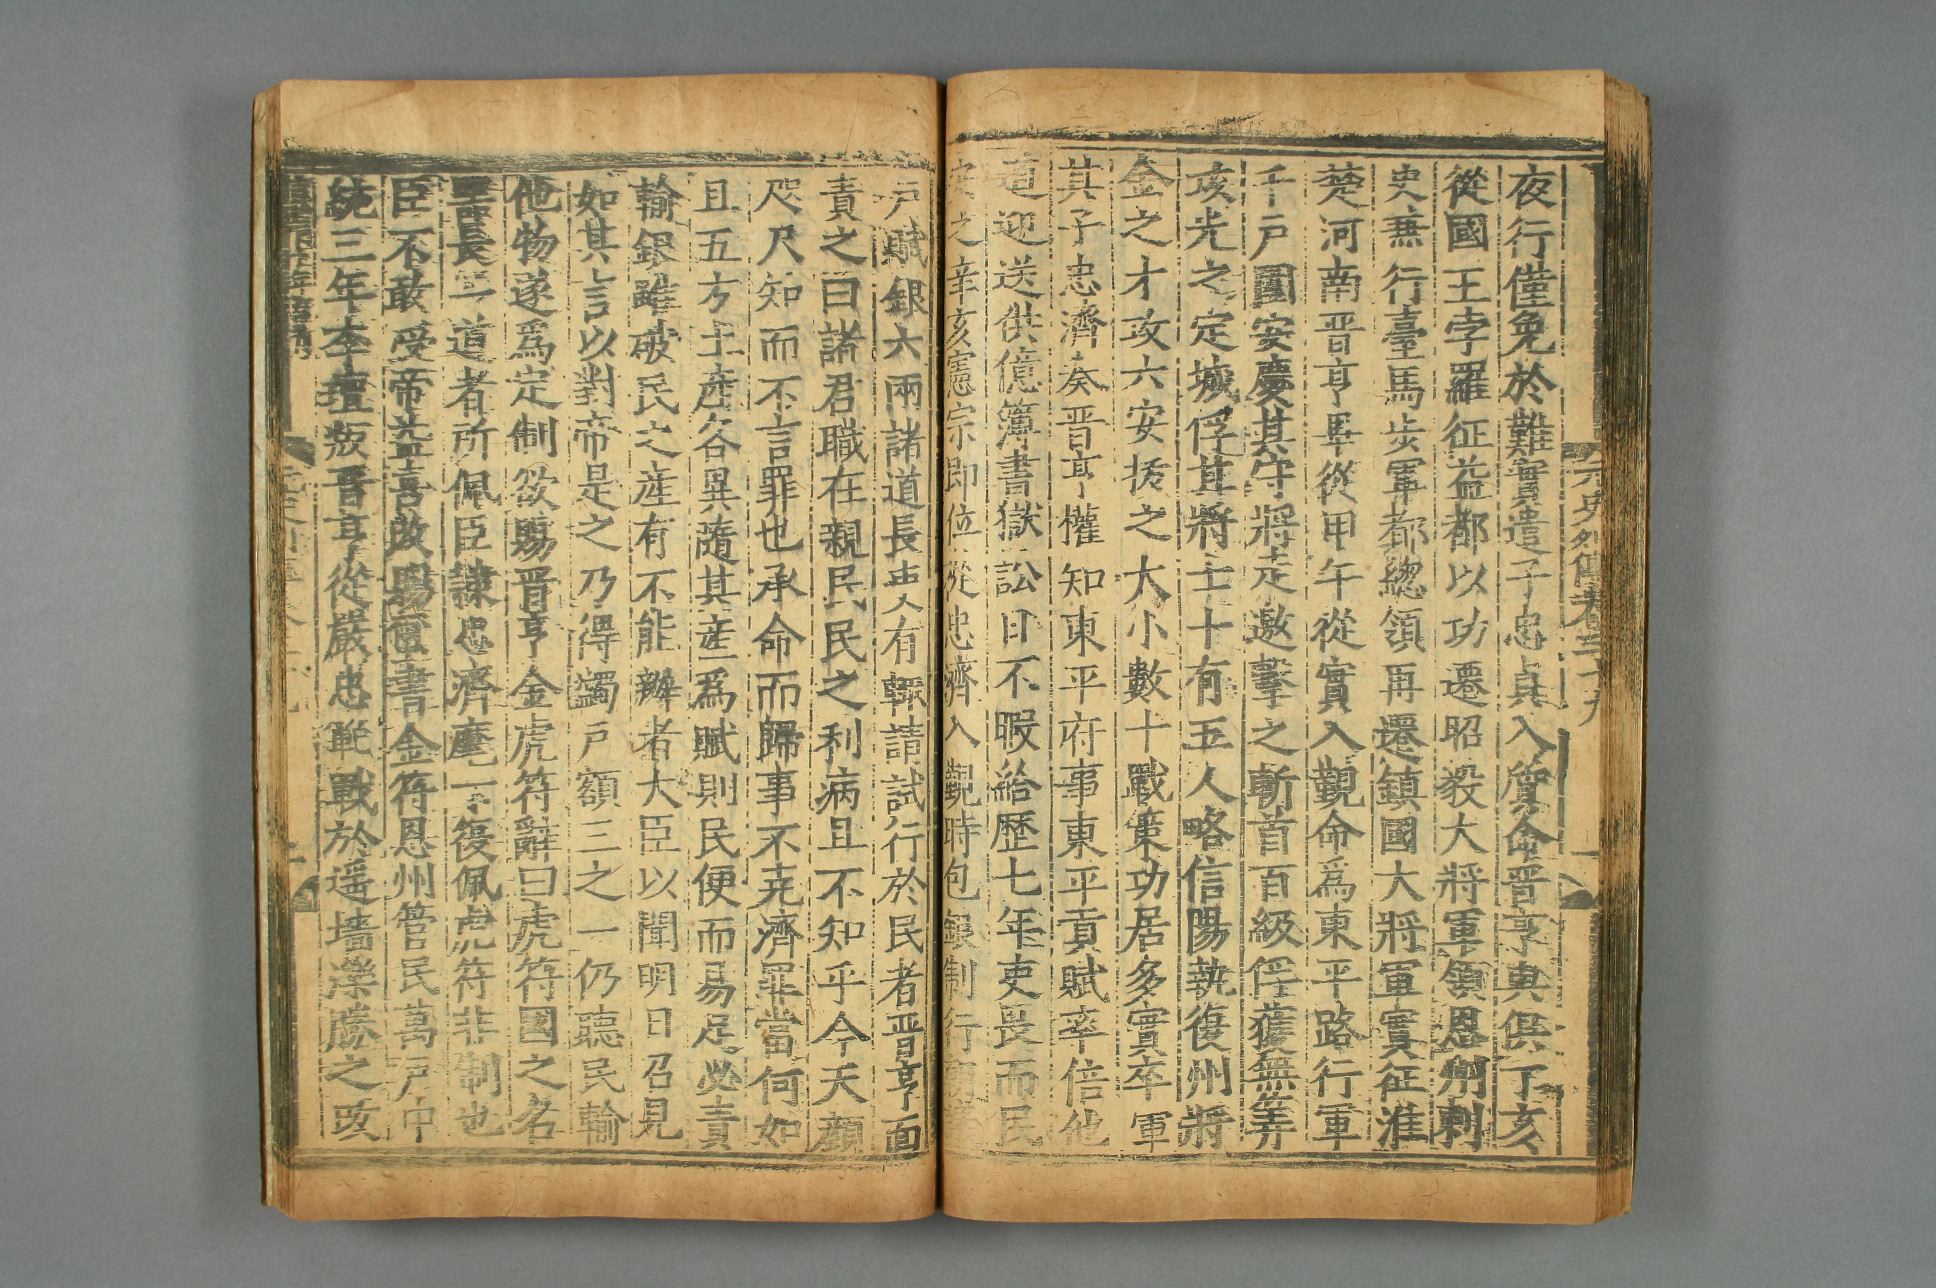 夜行僅免於難實遣子忠貞入質命晉亨與俱丁亥
從國王孛羅征益都以功遷昭毅大將軍領恩州刺
史兼行臺馬步軍都總領再遷鎮國大將軍實征淮
楚河南晋亨畢從甲午從實入覲命爲東平路行軍
千戶圍安慶其守將走邀擊之斬首百級俘獲無筭
亥光之定城俘其將士十有五人略信陽執復州將
金之才攻六安拔之大小數十戰策功居多實卒軍
其子忠濟奏晋亨權知東平府事東平貢賦率倍他
道迎送供億簿書獄訟日不暇給歷七年吏畏而民
安之辛亥憲宗即位從忠濟入覲時包銀制行
戶賦銀六兩諸道長吏有輒請試行於民者晋亨面
責之曰諸君職在親民民之利病且不知乎今天顔
咫尺知而不言罪也承命而歸事不克濟罪當何如
且五方土產各異隨其產爲賦則民便而易足必責
輸銀雖破民之產有不能辦者大臣以聞明日召見
如其言以對帝是之乃得蠲戶額三之一仍聽民輸
他物遂爲定制欲賜晋亨金虎符辭曰虎符國之名
器長一道者所佩臣隷忠濟麾下復佩虎符非制也
臣不敢受帝益喜改賜璽書金符恩州管民萬戶中
統三年李璮叛晋亨從嚴忠範戰於遥墻濼勝之改
元史列傳卷三十九